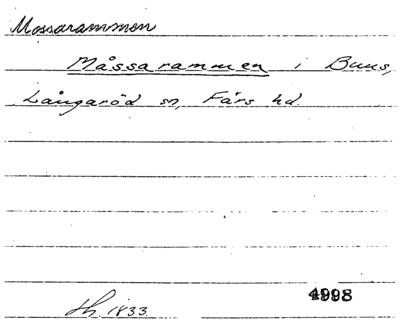 Mossarammen
Måssarammen i Buus,
Långaröd sn, Färs hd.
1833.
4998